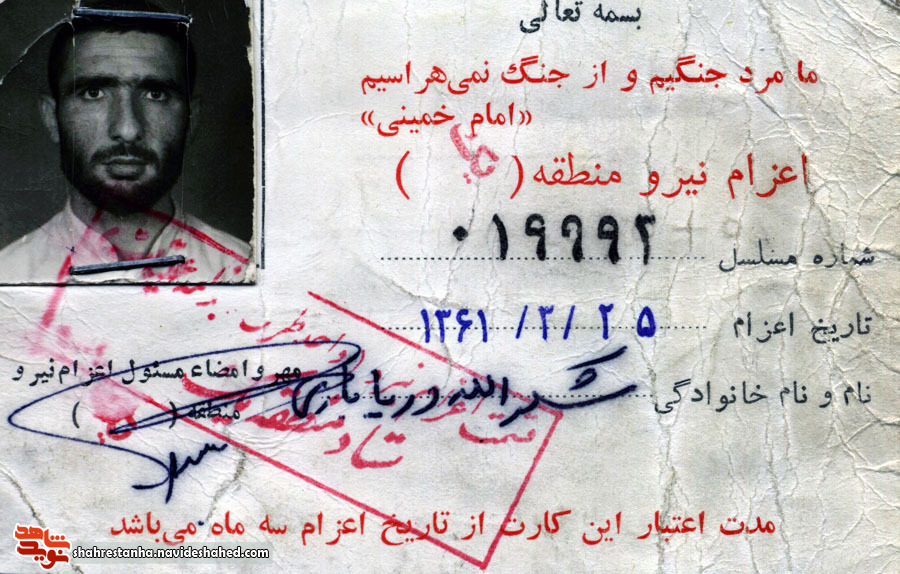 بسمه تعالی
ما مرد جنگیم و از جنگ نمی‌هراسیم
«امام خمینی»
اعزام نیرو منطقه ( )
شماره مسلسل ۰۱۹۶۹۲
تاریخ اعزام ۲۵ /۳/ ۱۳۶۱
نام و نام خانوادگی شکرالله دریاباری
مهر و امضاء مسئول اعزام نیرو
منطقه ( )
ستاد منطقه
مدت اعتبار این کارت از تاریخ اعزام سه ماه می‌باشد
شاهد
نوید
shahrestanha.navideshahed.com